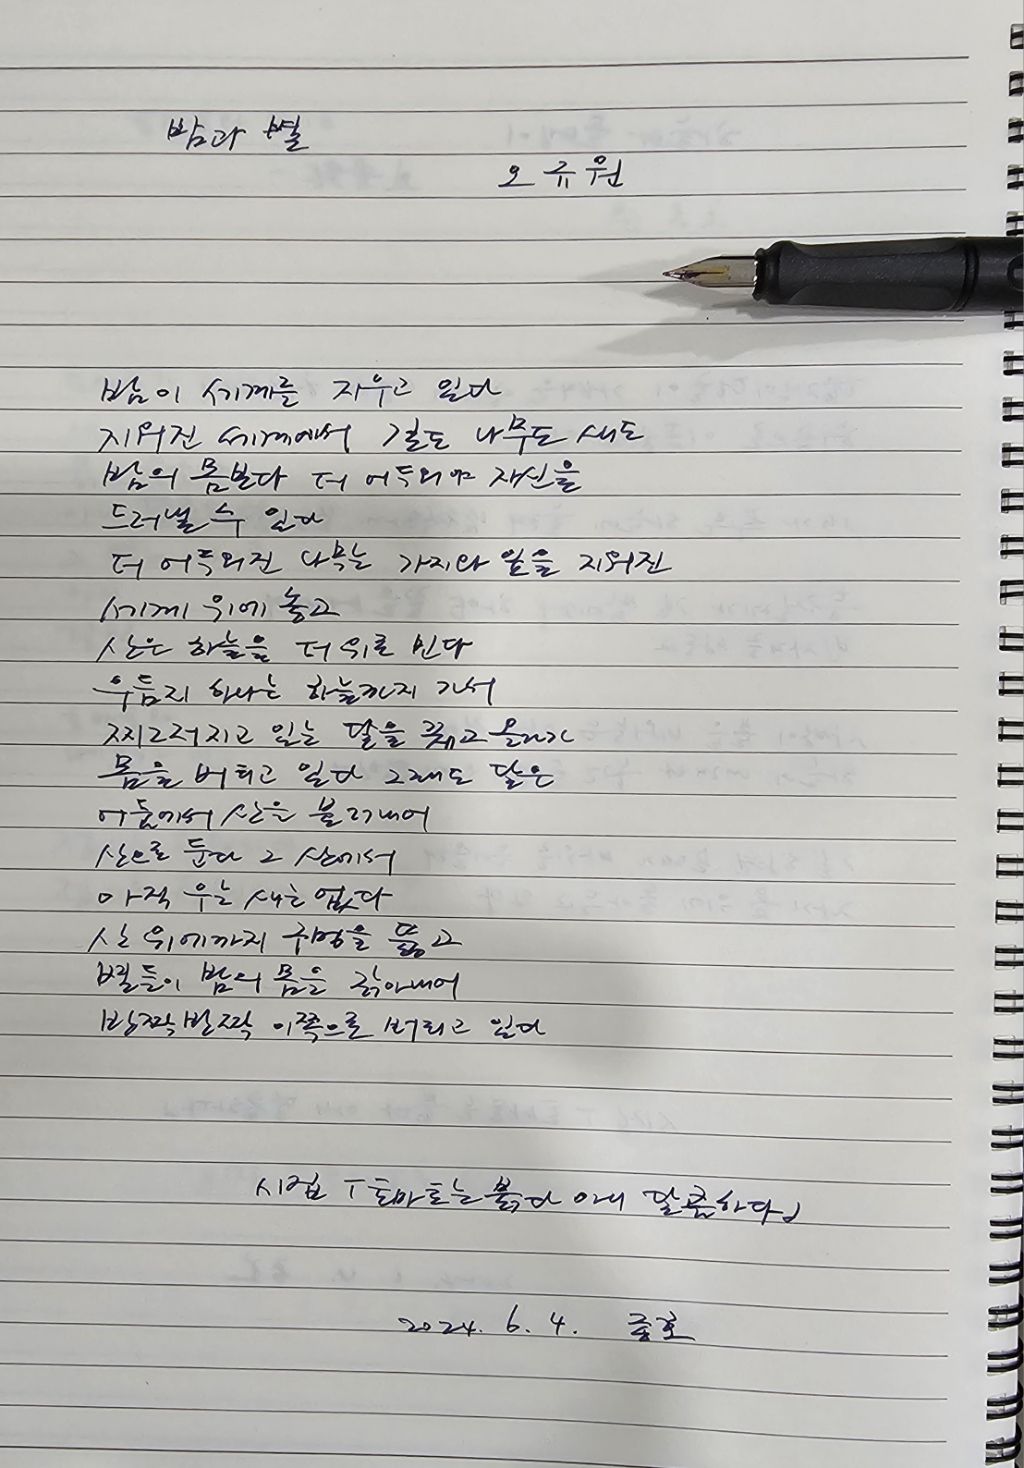 밤과 별
오규원
밤이 세계를 지우고 있다
지워진 세계에서 길도 나무도 새도
밤의 몸보다 더 어두워야 자신을
드러낼 수 있다
더 어두워진 나무는 가지와 잎을 지워진
세계 위에 놓고
산은 하늘을 더 위로 민다
우듬지 하나는 하늘까지 가서
찌그러지고 있는 달을 꿰고 올라가
몸을 버티고 있다 그래도 달은
어둠에서 산을 불러내어
산으로 둔다 그 산에서
아직 우는 새는 없다
산 위에까지 구멍을 뚫고
별들이 밤의 몸을 갉아내어
반짝반짝 이쪽으로 버리고 있다
시집 「토마토는 붉다 아니 달콤하다」
2024. 6. 4.